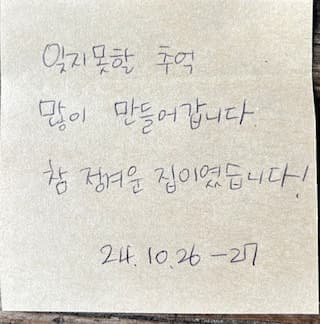 잊지못할 추억
많이 만들어갑니다.
참 정겨운 집이였습니다!
24.10.26-27